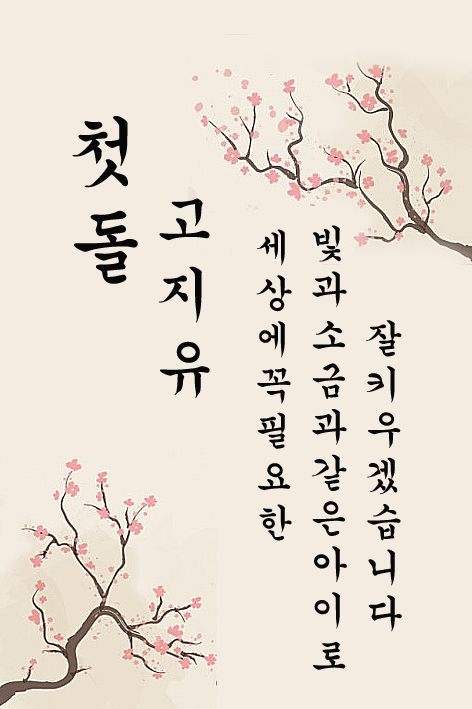 첫돌
고지유
세상에꼭필요한
빛과소금과같은아이로
잘키우겠습니다